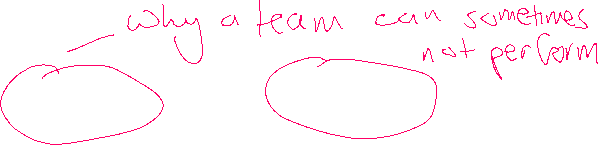 why a team can sometimes
not perform